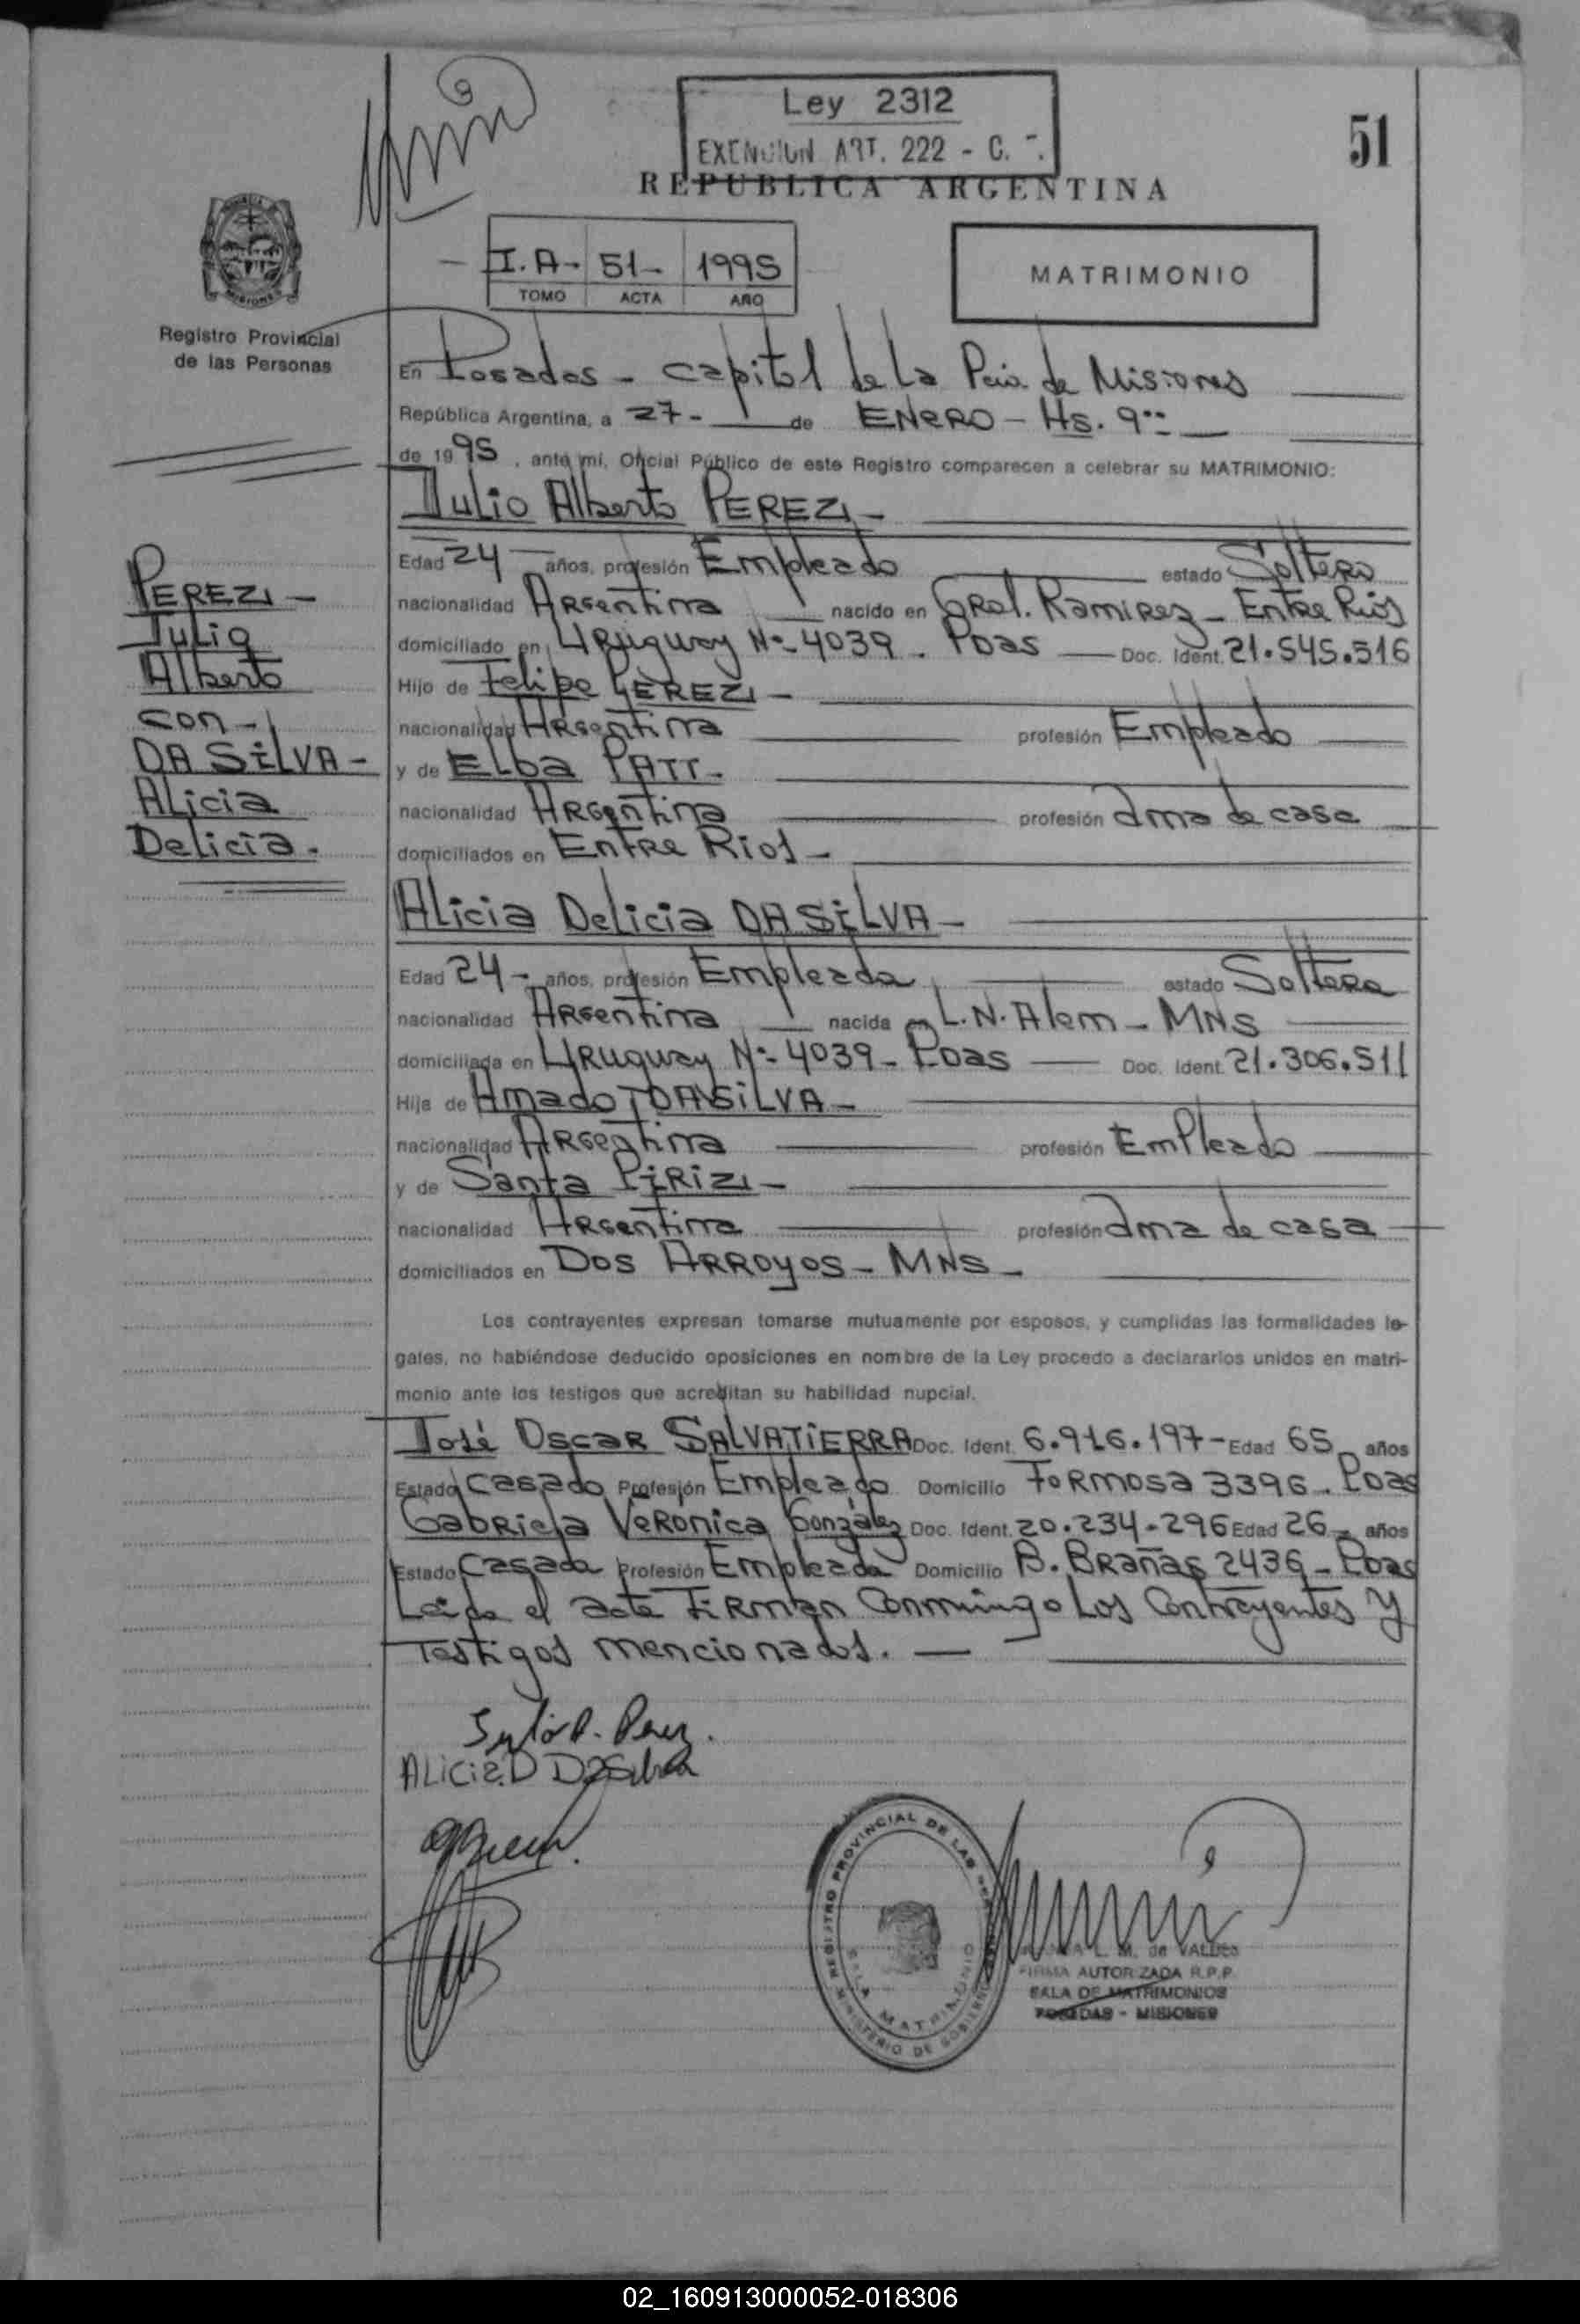 Ley 2312
EXENCION ART. 222 - C.
51
REPUBLICA ARGENTINA
I.A- 51- 1995
TOMO ACTA AÑO
MATRIMONIO
Registro Provincial
de las Personas
En Posadas - Capital de la Pcia. de Misiones
República Argentina, a 27- de ENERO - Hs. 9
de 1995, ante mí, Oficial Público de este Registro comparecen a celebrar su MATRIMONIO:
Julio Alberto PEREZ-
Edad 24 años, profesión Empleado estado Soltero
nacionalidad Argentina nacido en Gral. Ramirez - Entre Rios
domiciliado en Uruguay Nº- 4039 - Pdas Doc. Ident. 21.545.516
Hijo de Felipe PEREZ-
nacionalidad Argentina profesión Empleado
y de Elba PATT-
nacionalidad Argentina profesión Ama de casa
domiciliados en Entre Rios-
PEREZ-
Julio
Alberto
con-
DA SILVA-
Alicia
Delicia.
Alicia Delicia DA SILVA-
Edad 24- años, profesión Empleada estado Soltera
nacionalidad Argentina nacida en L.N. Alem - MNS
domiciliada en Uruguay Nº- 4039 - Pdas Doc. Ident. 21.306.511
Hija de Amado DA SILVA-
nacionalidad Argentina profesión Empleado
y de Santa PIRIZ-
nacionalidad Argentina profesión Ama de casa
domiciliados en Dos Arroyos - MNS-
Los contrayentes expresan tomarse mutuamente por esposos, y cumplidas las formalidades le-
gales, no habiéndose deducido oposiciones en nombre de la Ley procedo a declararlos unidos en matri-
monio ante los testigos que acreditan su habilidad nupcial.
José Oscar SALVATIERRA Doc. Ident. 6.916.197- Edad 65 años
Estado Casado Profesión Empleado Domicilio Formosa 3396 - Pdas
Gabriela Veronica González Doc. Ident. 20.234-296 Edad 26- años
Estado Casada Profesión Empleada Domicilio B. Brañas 2436 - Pdas
Leida el acta Firman Conmingo Los Contrayentes Y
Testigos mencionados.
Julio A. Perez.
ALiCia.D DaSilva
REGISTRO PROVINCIAL DE LAS
SALA MATRIMONIO
MINISTERIO DE GOBIERNO
L. M. de VALDES
FIRMA AUTORIZADA R.P.P.
SALA DE MATRIMONIOS
POSADAS - MISIONES
02_160913000052-018306